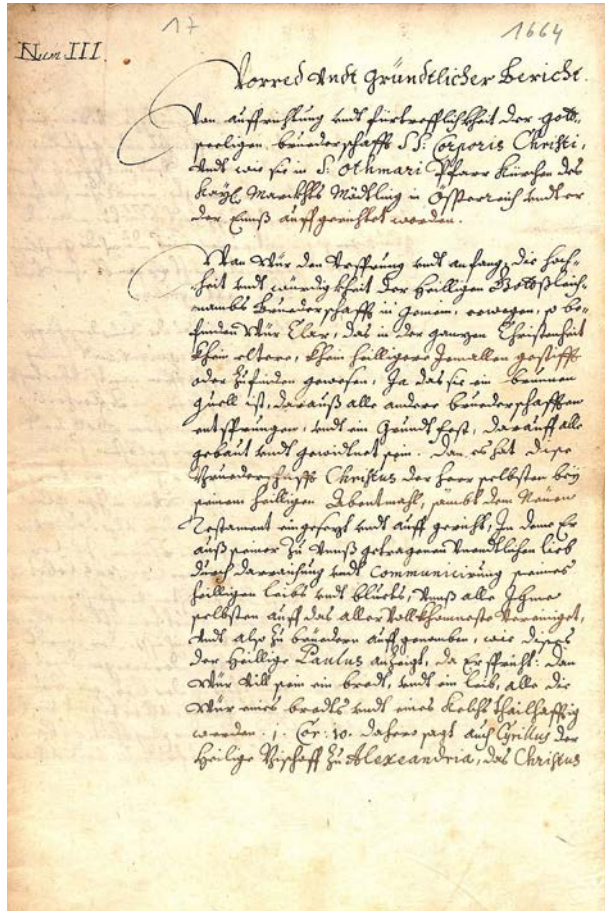 17
1664
Num. III.
Vorred undt gründtlicher Bericht.
Von auffrichtung undt fürtrefflichkheit der gott-
seeligen bruederschafft SS: Corporis Christi,
undt wie sie in S: Othmari Pfarr Kürchen des
Kayl: Marckhts Mödling in Össterreich undter
der Ennß auffgerichtet worden.
Wan wür den Ursprung undt anfang, die hoch-
heit undt würdigkheit der heilligen Frohnleich-
nambs Bruederschafft in gemein, erwegen, so be-
finden wür clar, das in der ganzen Christenheit
khein eltere, khein heilligere Jemallen gestifft
oder zufinden gewesen, Ja das sie ein brunnen
quell ist, darauß alle andere bruederschafften
entsprungen, undt ein Grundt fest, darauff alle
gebaut undt gewidtnet sein. Dan es hat dise
Bruederschafft Christus der Herr selbsten bey
seinem heilligen Abentmahl, sambt dem Neuen
Testament eingesezt undt auffgericht, In deme Er
auß seiner zu unnß getragenen unendtlichen lieb
durch darraichung undt communicirung seines
heilligen leibs undt bluets, unnß alle Ihme
selbsten auff das aller Vollkhomneste Vereiniget,
undt also zu bruedern auffgenomben, wie dises
der heillige Paulus anzeigt, da Er spricht: Dan
wür Vill sein ein brodt, undt ein leib, alle die
wür eines brodts undt eines Kelchs theilhafftig
werden. 1. Cor: 10. Dahero sagt auch Cyrillus der
Heilige Bischoff zu Alexandria, das Christus